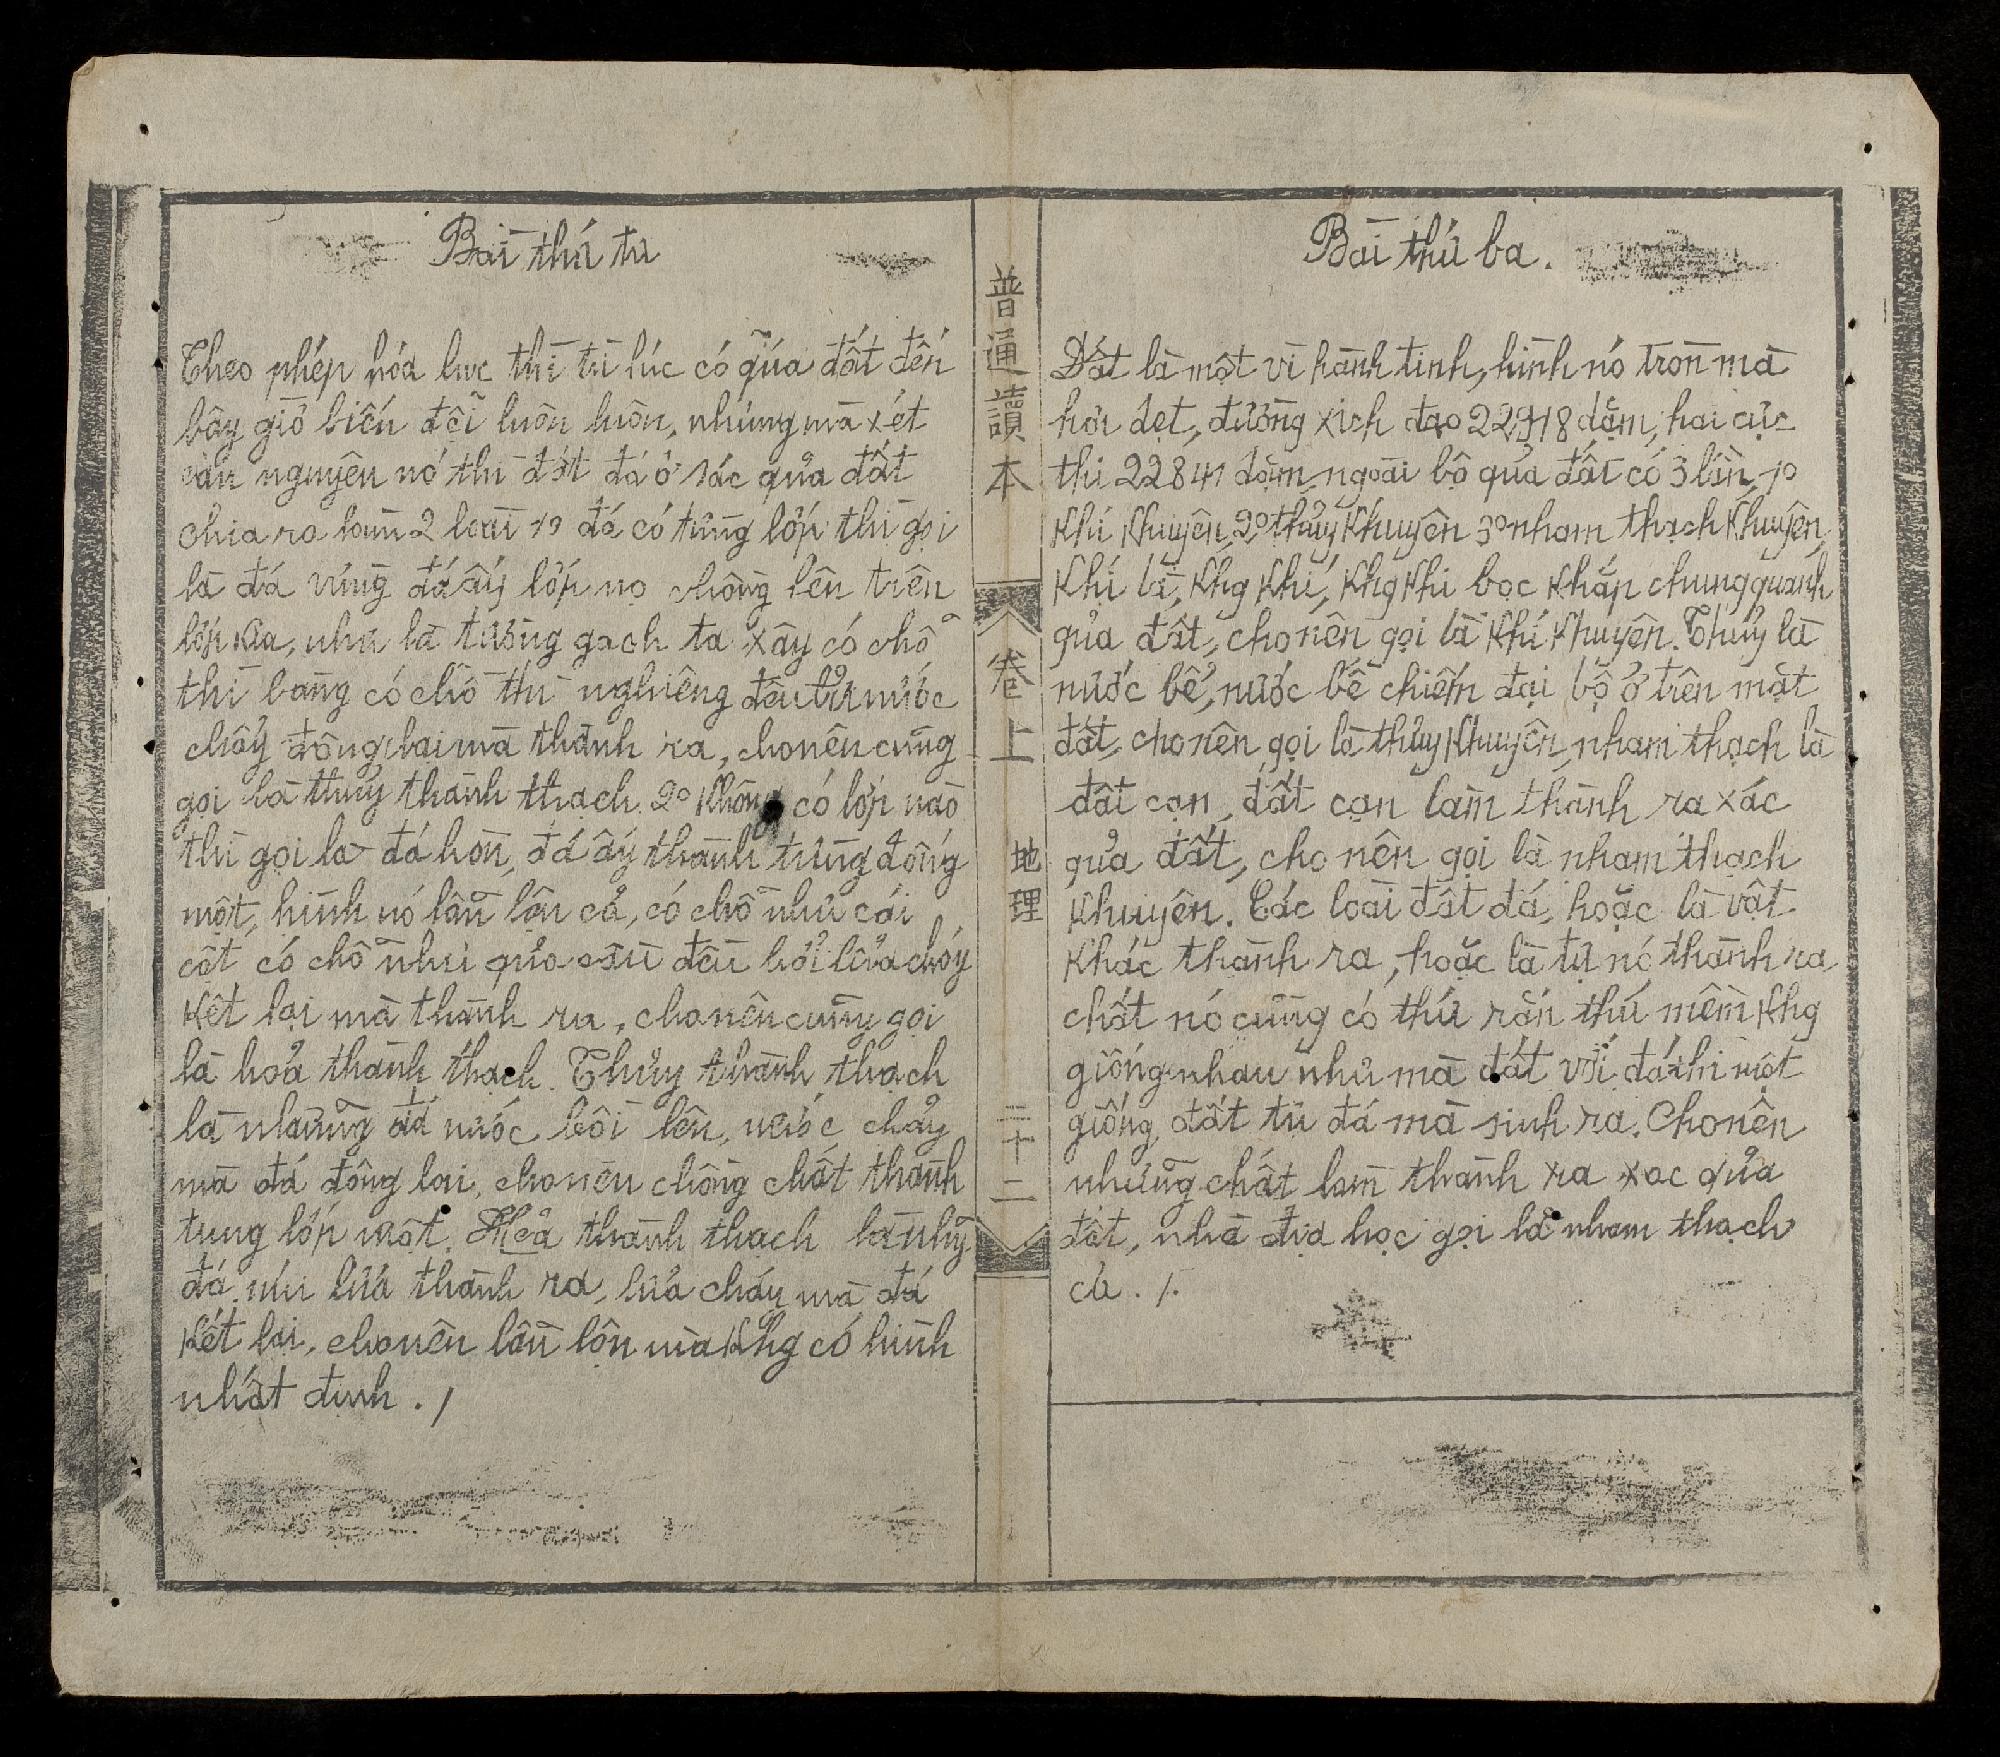 Bài thứ ba.
Đất là một vì hành tinh, hình nó tròn mà
hơi dẹt, đường xích đạo 22918 dặm, hai cực
thì 22841 dặm, ngoài bộ quả đất có 3 lần, 1º
Khí Khuyên, 2º thủy Khuyên 3º nham thạch Khuyên,
Khí là, Khg Khí, Khg Khí bọc Khắp chung quanh
quả đất, cho nên gọi là Khí Khuyên. Thủy là
nước bể, nước bể chiếm đại bộ ở trên mặt
đất, cho nên gọi là thủy Khuyên, nham thạch là
đất cạn, đất cạn làm thành ra xác
quả đất, cho nên gọi là nham thạch
Khuyên. Các loài đất đá, hoặc là vật
Khác thành ra, hoặc là tự nó thành ra
chất nó cũng có thứ rắn thứ mềm Khg
giống nhau nhưng mà đất với đá thì một
giống, đất từ đá mà sinh ra. Cho nên
những chất làm thành ra xác quả
đất, nhà địa học gọi là nham thạch
cả. /.
普通讀本
卷上
地理
二十二
Bài thứ tư
Theo phép hóa lực thì từ lúc có quả đất đến
bây giờ biến đổi luôn luôn, nhưng mà xét
căn nguyên nó thì đất đá ở xác quả đất
chia ra làm 2 loài 1º đá có từng lớp thì gọi
là đá vừng đá ấy lớp nọ chồng lên trên
lớp Kia, như là tường gạch ta xây có chỗ
thì bằng có chỗ thì nghiêng đều bởi nước
chảy đông lại mà thành ra, cho nên cũng
gọi là thủy thành thạch. 2º Không có lớp nào
thì gọi là đá hòn, đá ấy thành từng đống
một, hình nó lẫn lộn cả, có chỗ như cái
cột có chỗ như quả cầu đều bởi lửa cháy
Kết lại mà thành ra, cho nên cũng gọi
là hỏa thành thạch. Thủy thành thạch
là những đá nước bồi lên, nước chảy
mà đá đông lại, cho nên chồng chất thành
từng lớp một. Hỏa thành thạch là nhg̃
đá núi lửa thành ra, lửa cháy mà đá
Kết lại, cho nên lẫn lộn mà Khg có hình
nhất định. /